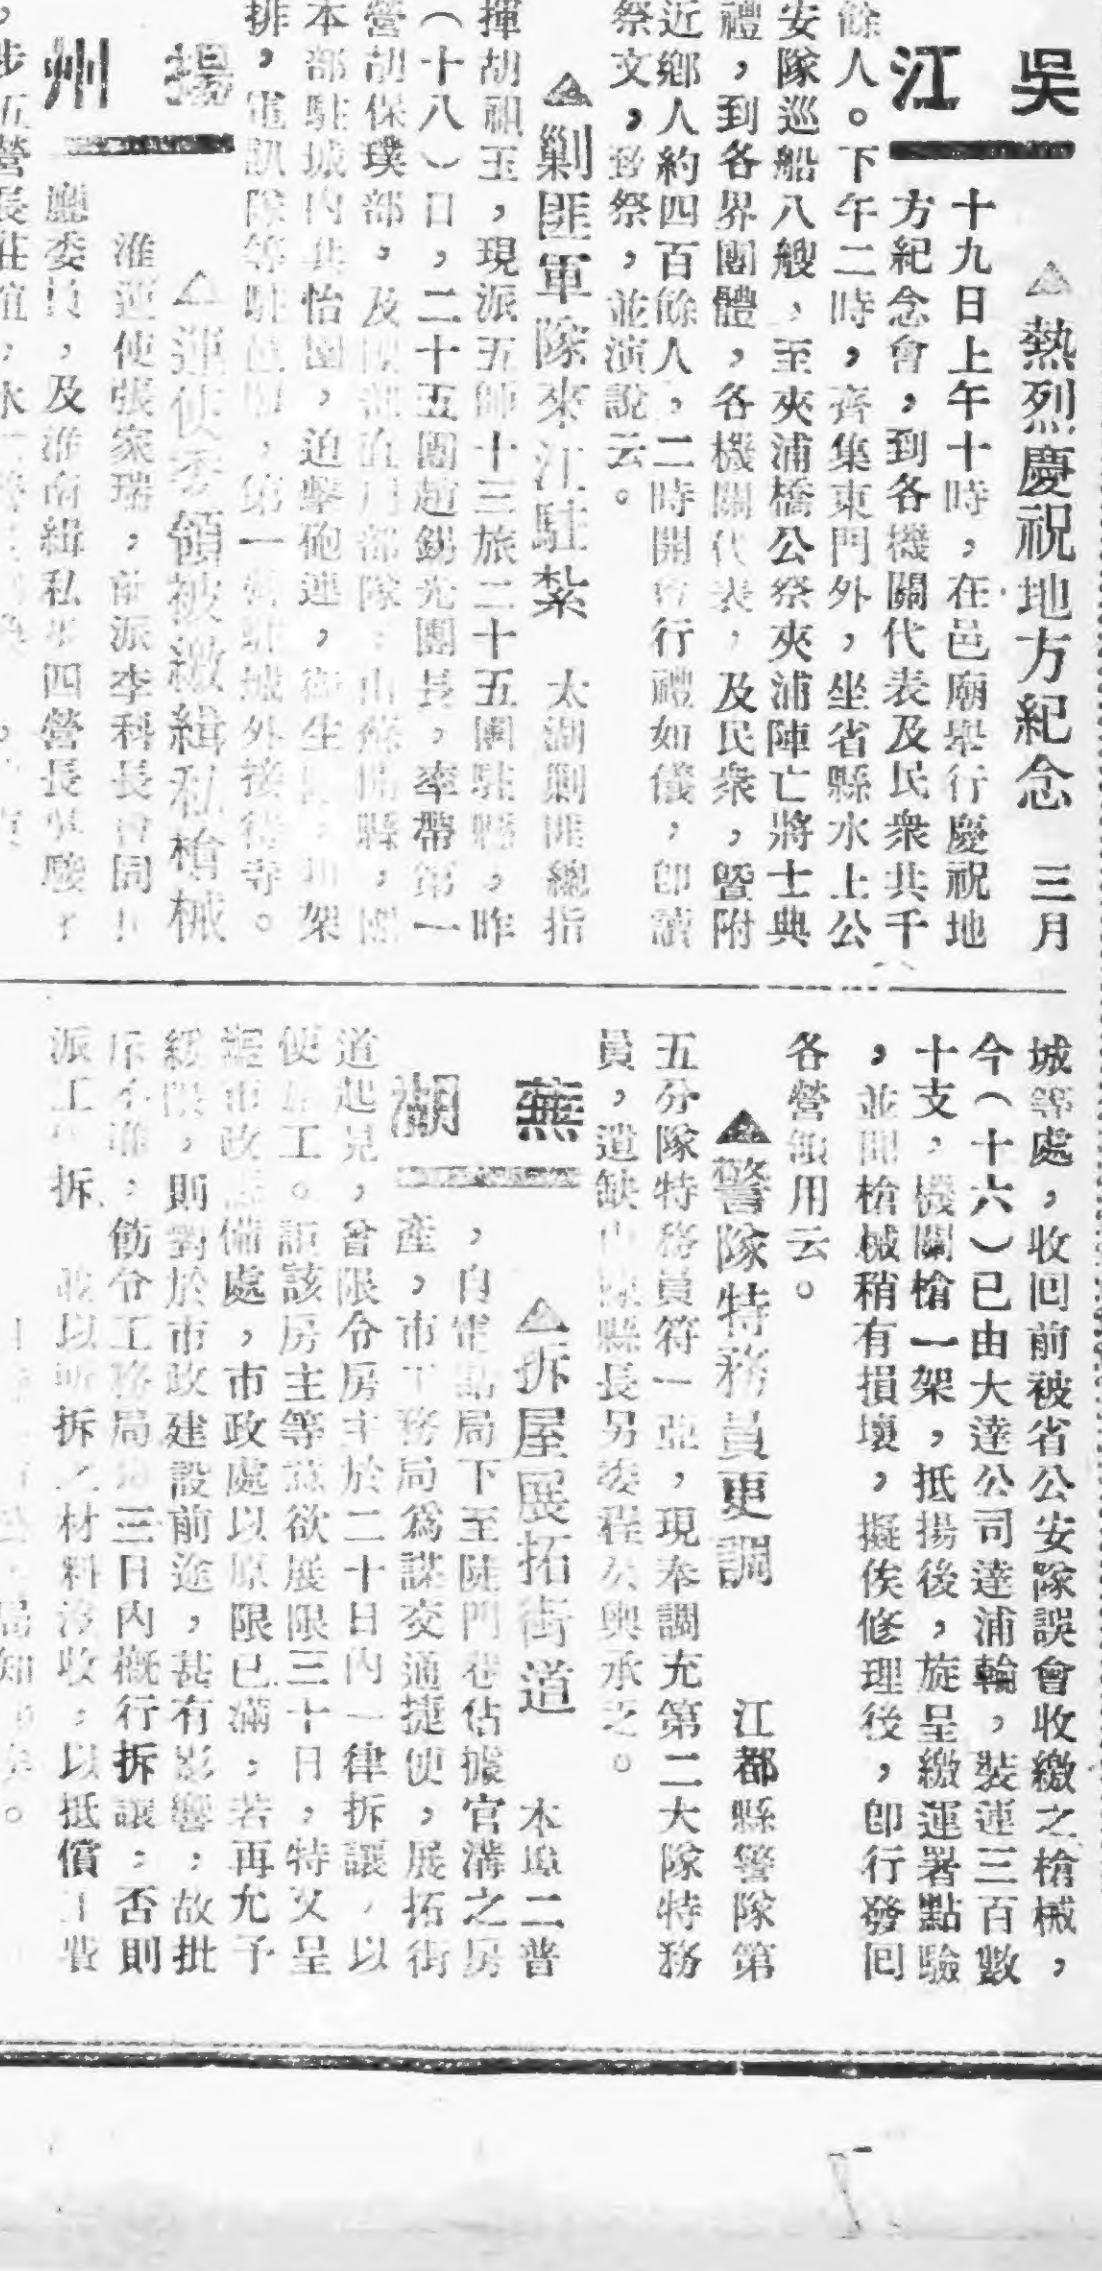 吳江
▲熱烈慶祝地方紀念　三月
十九日上午十時，在邑廟舉行慶祝地
方紀念會，到各機關代表及民衆共千
餘人。下午二時，齊集東門外，坐省縣水上公
安隊巡船八艘，至夾浦橋公祭夾浦陣亡將士典
禮，到各界團體，各機關代表，及民衆，曁附
近鄉人約四百餘人，二時開會行禮如儀，卽讀
祭文，致祭，並演說云。
▲剿匪軍隊來江駐紮　太湖剿匪總指
揮胡祖玉，現派五師十三旅二十五團駐縣，昨
（十八）日，二十五團趙錫光團長，率帶第一
營胡保璞部，及團部直屬部隊，由蘇開縣，團
本部駐城内共怡園，迫擊砲連，衛生隊，担架
排，電訊隊等駐邑廟，第一營駐城外接待寺。
揚州
△運使委領被繳緝私槍械
淮運使張家瑞，前派李科長會同
廳委員，及淮南緝私步四營長
步五營長莊誼，水
城等處，收回前被省公安隊誤會收繳之槍械，
今（十六）已由大達公司達浦輪，裝運三百數
十支，機關槍一架，抵揚後，旋呈繳運署點驗
，並聞槍械稍有損壞，擬俟修理後，卽行發回
各營領用云。
▲警隊特務員更調　江都縣警隊第
五分隊特務員符一亞，現奉調充第二大隊特務
員，遺缺由陳縣長另委程公輿承之。
蕪湖
△拆屋展拓街道　本埠二普
，自電話局下至陡門巷佔據官溝之房
產，市工務局爲謀交通捷便，展拓街
道起見，曾限令房主於二十日内一律拆讓，以
便施工。詎該房主等意欲展限三十日，特又呈
經市政籌備處，市政處以原限已滿；若再允予
緩限，則對於市政建設前途，甚有影響；故批
斥不准，飭令工務局於三日内槪行拆讓；否則
派工拆　以所拆之材料沒收，以抵償工費
局知